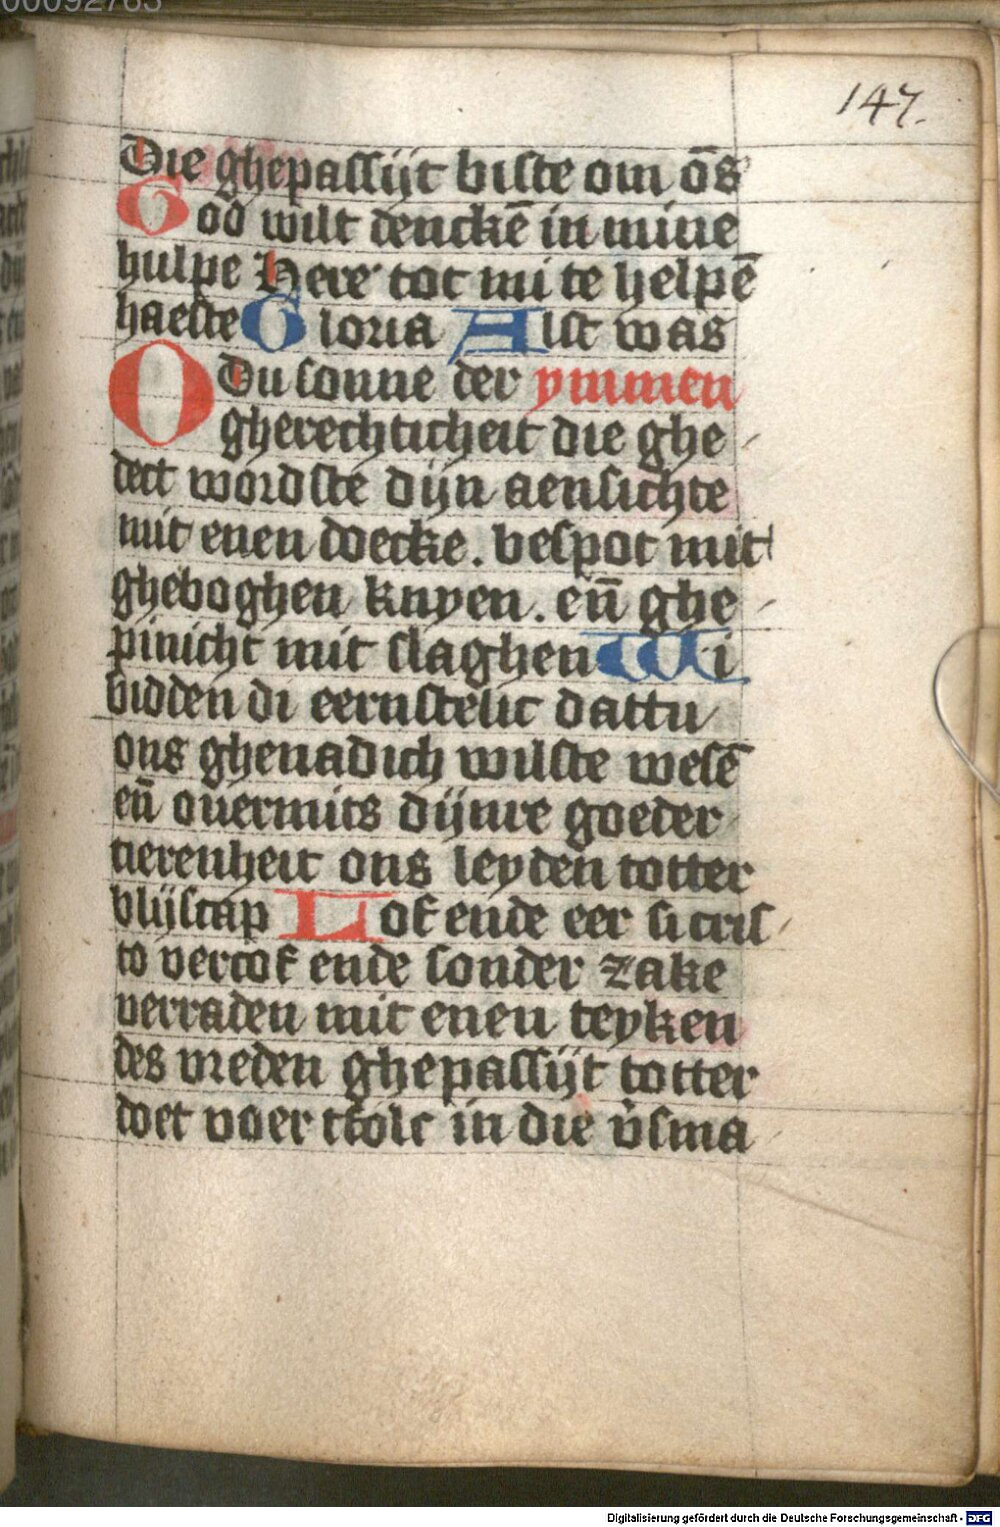 00092763
147.
Die ghepassijt biste om ōs
God wilt denckē in mine
hulpe Here tot mi te helpē
haeste Gloria Alst was
O Du sonne der ymmen
gherechticheit die ghe
dect wordste dijn aensichte
mit enen doecke. bespot mit
gheboghen knyen. eñ ghe
pinicht mit slaghen Wi
bidden di eernstelic dattu
ons ghenadich wilste wesē
eñ ouermits dijnre goeder
tierenheit ons leyden totter
blijscap Lof ende eer si cris
to vercoft ende sonder zake
verraden mit enen teyken
des vreden ghepassijt totter
doet voer tfolc in die v̄sma
Digitalisierung gefördert durch die Deutsche Forschungsgemeinschaft - DFG